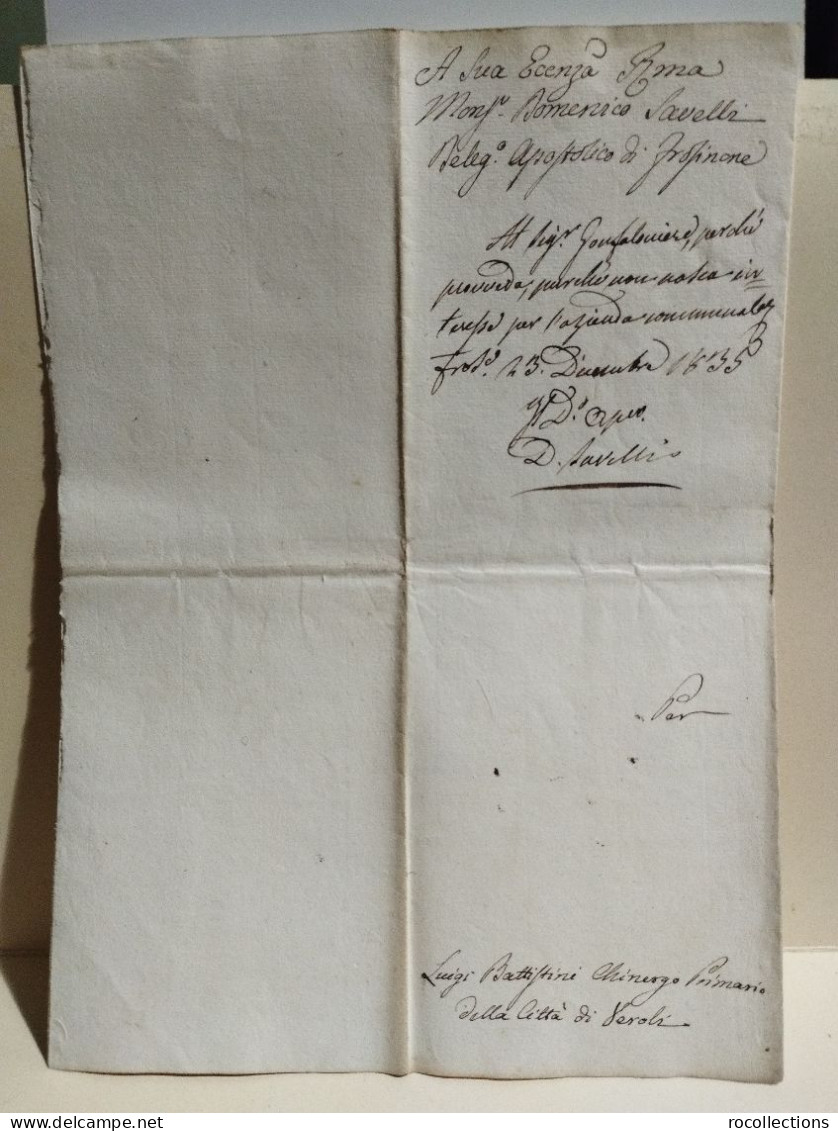 A Sua Ecenza Rma
Monsr. Domenico Savelli
Deleg.o Apostolico di Frosinone
Al Sigr. Gonfaloniere, perchè
provveda, purchè non nasca in=
teresse per l'azienda communale
Fros.e 23. Dicembre 1835
Il D.o Apco.
D. Savelli
Per
Luigi Battistini Chirurgo Primario
della Città di Veroli
rocollections